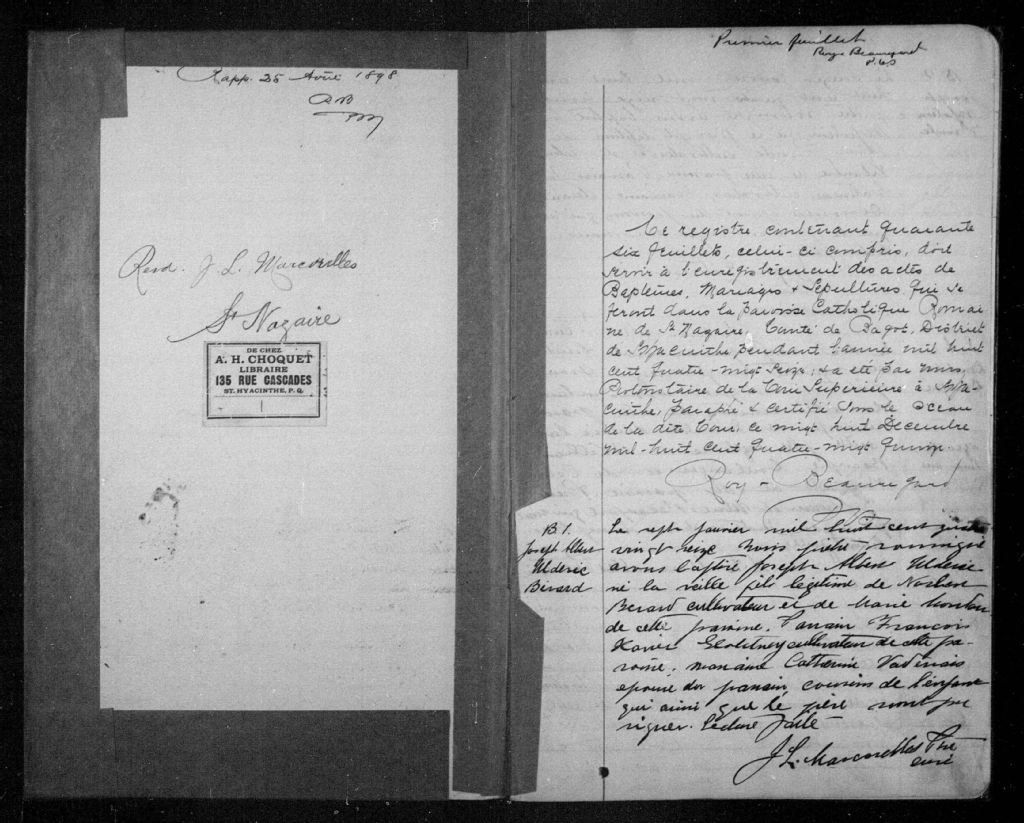 Rapp. 25 Avril 1898
Revd. J. L. Marcorelles
St Nazaire
DE CHEZ
A. H. CHOQUET
LIBRAIRE
135 RUE CASCADES
ST. HYACINTHE, P. Q.
Premier feuillet
Roy & Beauregard
P.C.S
Ce registre contenant quarante
six feuillets, celui-ci compris, doit
servir à l'enregistrement des actes de
Baptêmes, Mariages & Sépultures qui se
feront dans la Paroisse Catholique Romai
ne de St Nazaire, Comté de Bagot, District
de St Hyacinthe pendant l'année mil huit
cent quatre-vingt seize, & a été par nous,
Protonotaire de la Cour Supérieure à St Hya-
cinthe, paraphé & certifié sous le sceau
de la dite Cour, ce vingt huit Décembre
mil-huit cent quatre-vingt quinze.
Roy & Beauregard
B 1.
Joseph Albert
Ulderic
Bérard
Le sept janvier mil huit cent quatre
vingt seize nous prêtre soussigné
avons baptisé Joseph Albert Ulderic
né la veille fils légitime de Norbert
Bérard cultivateur et de Marie
de cette paroisse. Parrain François
Xavier cultivateur de cette pa-
roisse, marraine Catherine Vadenais
épouse du parrain, cousins de l'enfant
qui ainsi que le père n'ont pu
signer. Lecture faite
J. L. Marcorelles Ptre
curé